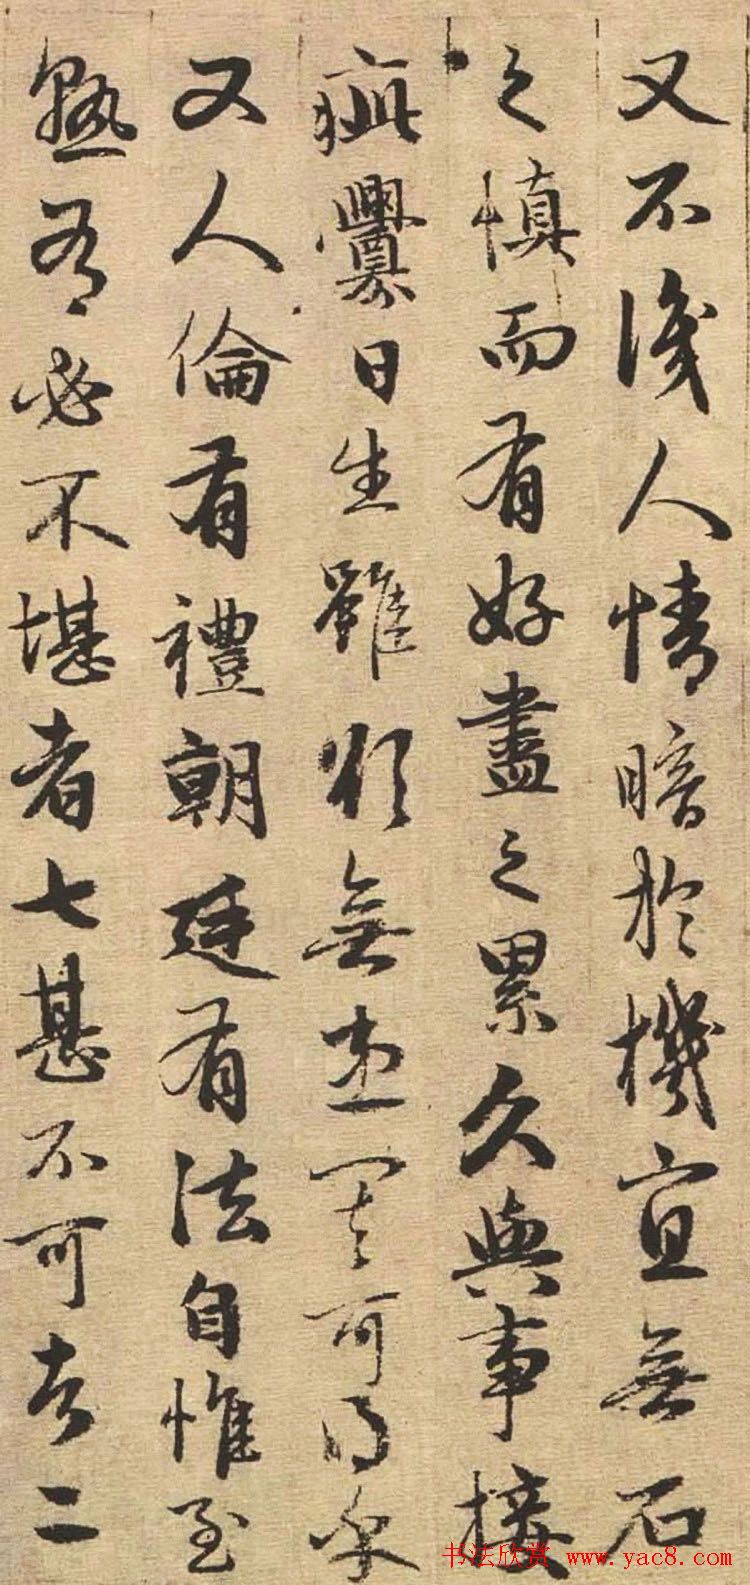 又不識人情暗於機宜無石
之慎而有好盡之累久與事接
疵釁日生雖欲無患其可得乎
又人倫有禮朝廷有法自惟至
熟有必不堪者七甚不可者二
书法欣赏 www.yac8.com